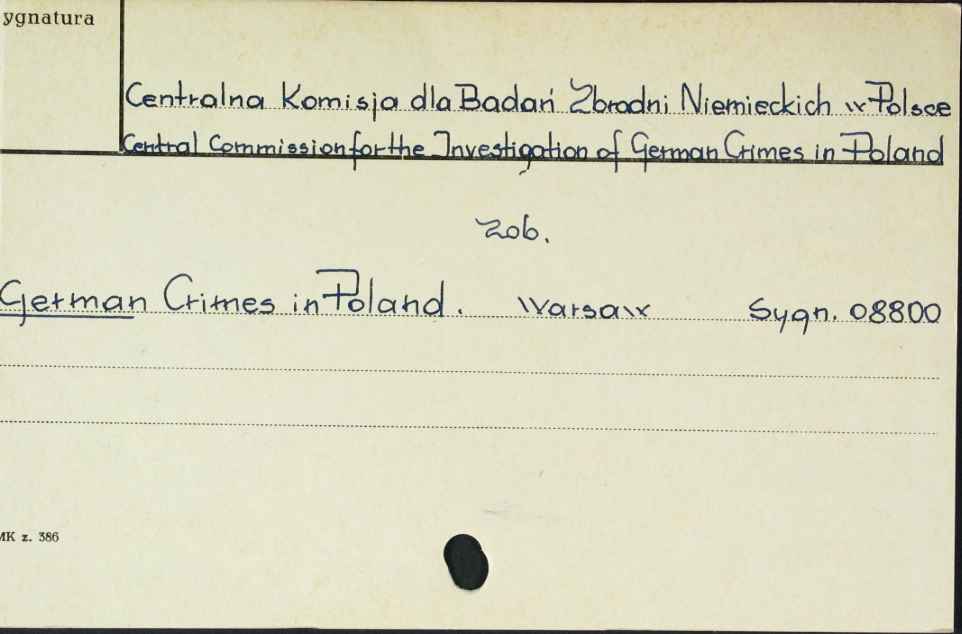 ygnatura
Centralna Komisja dla Badań Zbrodni Niemieckich w Polsce
Central Commission for the Investigation of German Crimes in Poland
Zob.
German Crimes in Poland. Warsaw Sygn. 08800
MK z. 386